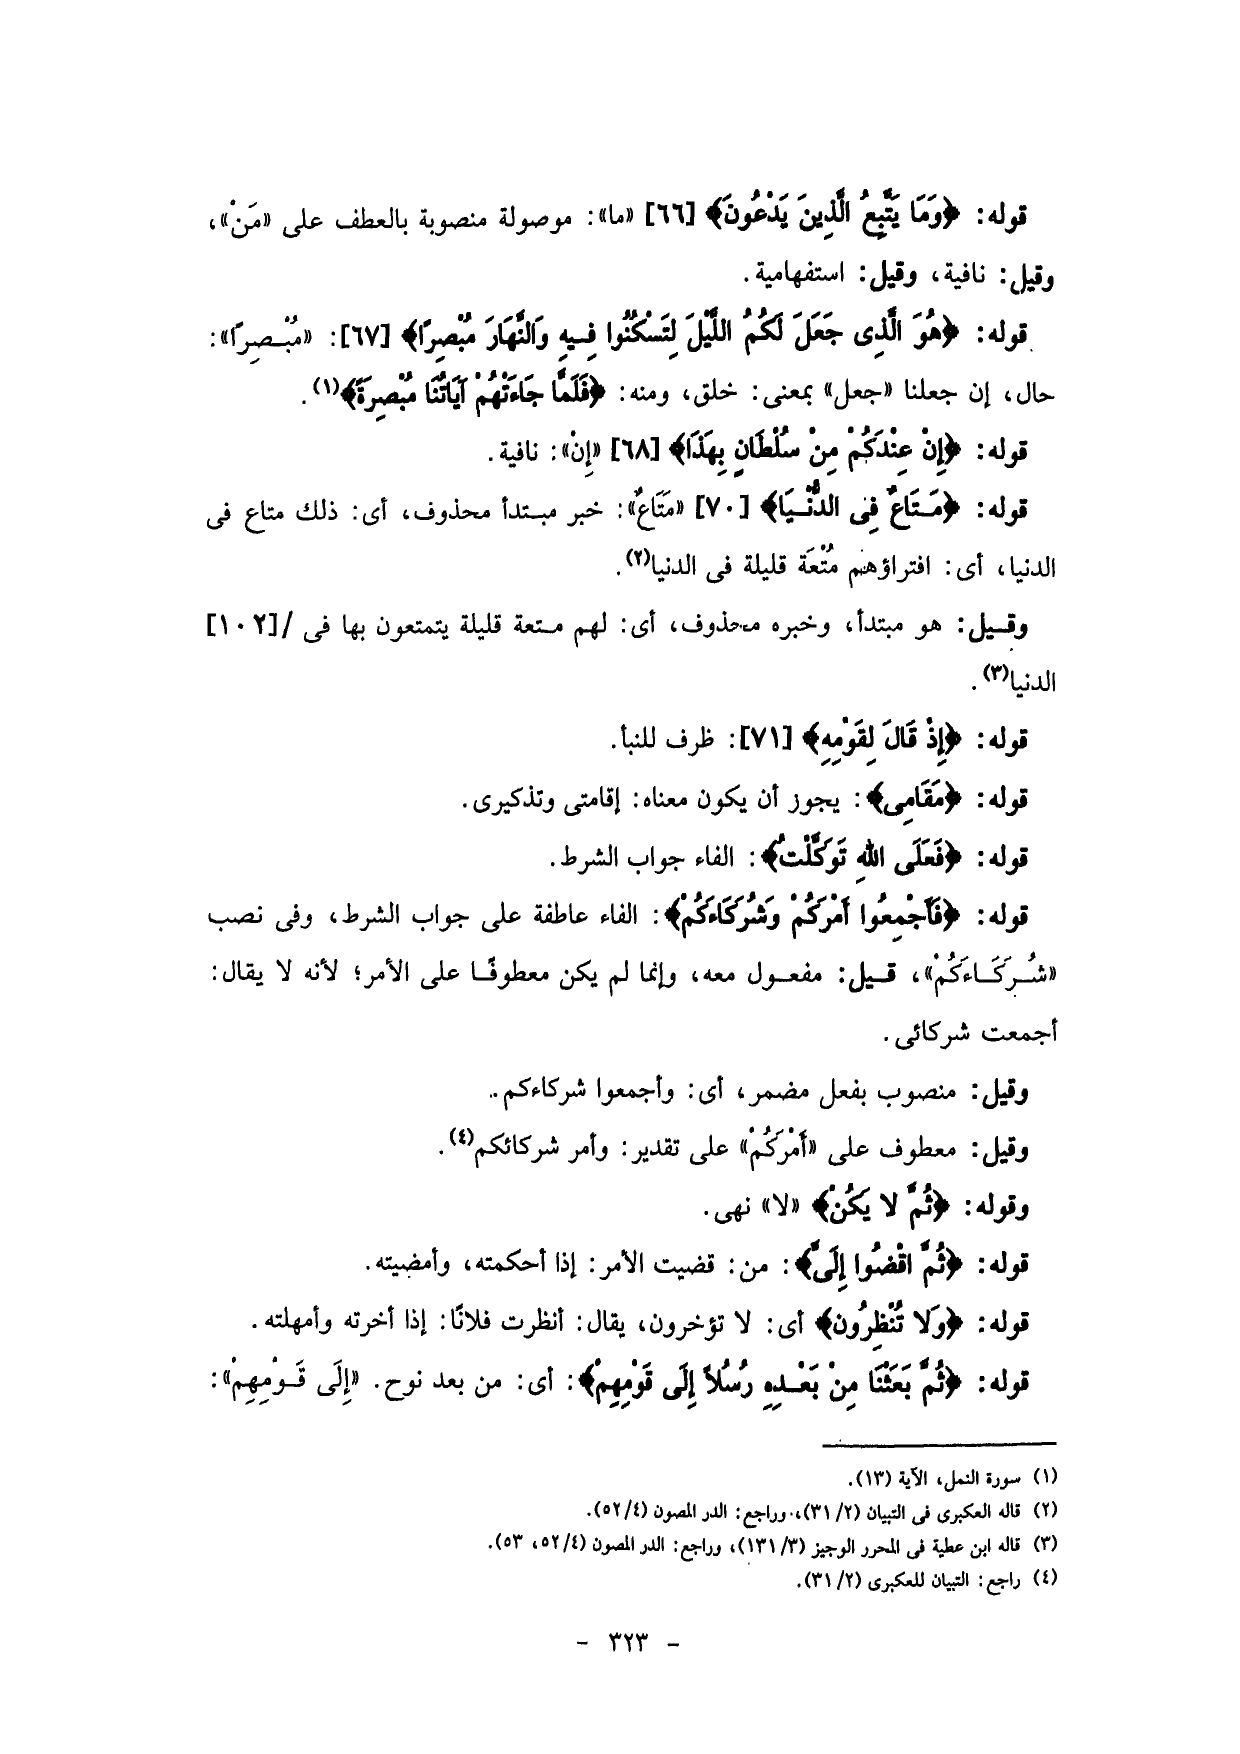 قوله: ﴿وَمَا يَتَّبِعُ الَّذِينَ يَدْعُونَ﴾ [٦٦] «ما»: موصولة منصوبة بالعطف على «مَنْ»،
وقيل: نافية، وقيل: استفهامية.
قوله: ﴿هُوَ الَّذِى جَعَلَ لَكُمُ اللَّيْلَ لِتَسْكُنُوا فِيهِ وَالنَّهَارَ مُبْصِرًا﴾ [٦٧]: «مُبْصِرًا»:
حال، إن جعلنا «جعل» بمعنى: خلق، ومنه: ﴿فَلَمَّا جَاءَتْهُمْ آيَاتُنَا مُبْصِرَةً﴾(١).
قوله: ﴿إِنْ عِنْدَكُمْ مِنْ سُلْطَانٍ بِهَذَا﴾ [٦٨] «إِنْ»: نافية.
قوله: ﴿مَتَاعٌ فِى الدُّنْيَا﴾ [٧٠] «مَتَاعٌ»: خبر مبتدأ محذوف، أى: ذلك متاع فى
الدنيا، أى: افتراؤهم مُتْعَة قليلة فى الدنيا(٢).
وقيل: هو مبتدأ، وخبره محذوف، أى: لهم متعة قليلة يتمتعون بها فى /[١٠٢]
الدنيا(٣).
قوله: ﴿إِذْ قَالَ لِقَوْمِهِ﴾ [٧١]: ظرف للنبأ.
قوله: ﴿مَقَامِى﴾: يجوز أن يكون معناه: إقامتى وتذكيرى.
قوله: ﴿فَعَلَى اللهِ تَوَكَّلْتُ﴾: الفاء جواب الشرط.
قوله: ﴿فَأَجْمِعُوا أَمْرَكُمْ وَشُرَكَاءَكُمْ﴾: الفاء عاطفة على جواب الشرط، وفى نصب
«شُرَكَاءَكُمْ»، قيل: مفعول معه، وإنما لم يكن معطوفًا على الأمر؛ لأنه لا يقال:
أجمعت شركائى.
وقيل: منصوب بفعل مضمر، أى: وأجمعوا شركاءكم.
وقيل: معطوف على «أَمْرَكُمْ» على تقدير: وأمر شركائكم(٤).
وقوله: ﴿ثُمَّ لا يَكُنْ﴾ «لا» نهى.
قوله: ﴿ثُمَّ اقْضُوا إِلَىَّ﴾: من: قضيت الأمر: إذا أحكمته، وأمضيته.
قوله: ﴿وَلا تُنْظِرُونِ﴾ أى: لا تؤخرون، يقال: أنظرت فلانًا: إذا أخرته وأمهلته.
قوله: ﴿ثُمَّ بَعَثْنَا مِنْ بَعْدِهِ رُسُلاً إِلَى قَوْمِهِمْ﴾: أى: من بعد نوح. «إِلَى قَوْمِهِمْ»:
(١) سورة النمل، الآية (١٣).
(٢) قاله العكبرى فى التبيان (٣١/٢)، وراجع: الدر المصون (٥٢/٤).
(٣) قاله ابن عطية فى المحرر الوجيز (١٣١/٣)، وراجع: الدر المصون (٥٢/٤، ٥٣).
(٤) راجع: التبيان للعكبرى (٣١/٢).
- ٣٢٣ -